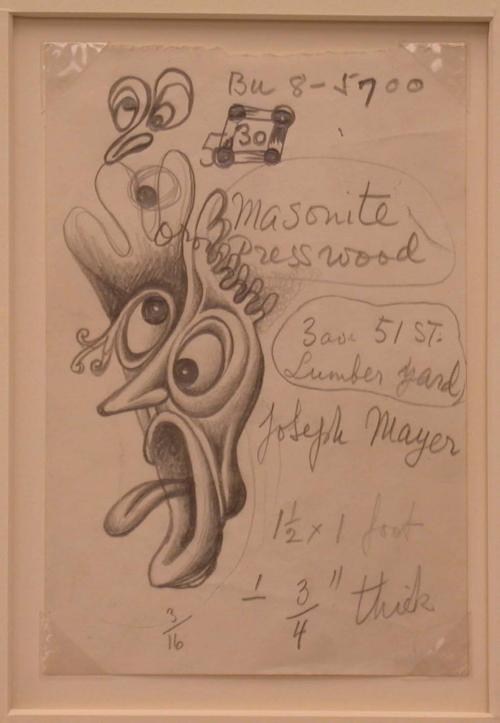 Bu 8-5700
5
Bo
Masonite
or Presswood
3 ave 51 ST.
Lumber yard
Joseph Mayer
1 1/2 x 1 foot
1 3/4" thick
3/16